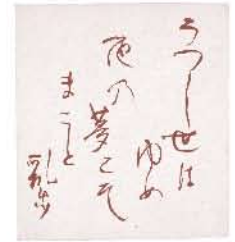 うつし世は
ゆめ
夜の
夢こそ
まこと
乱歩